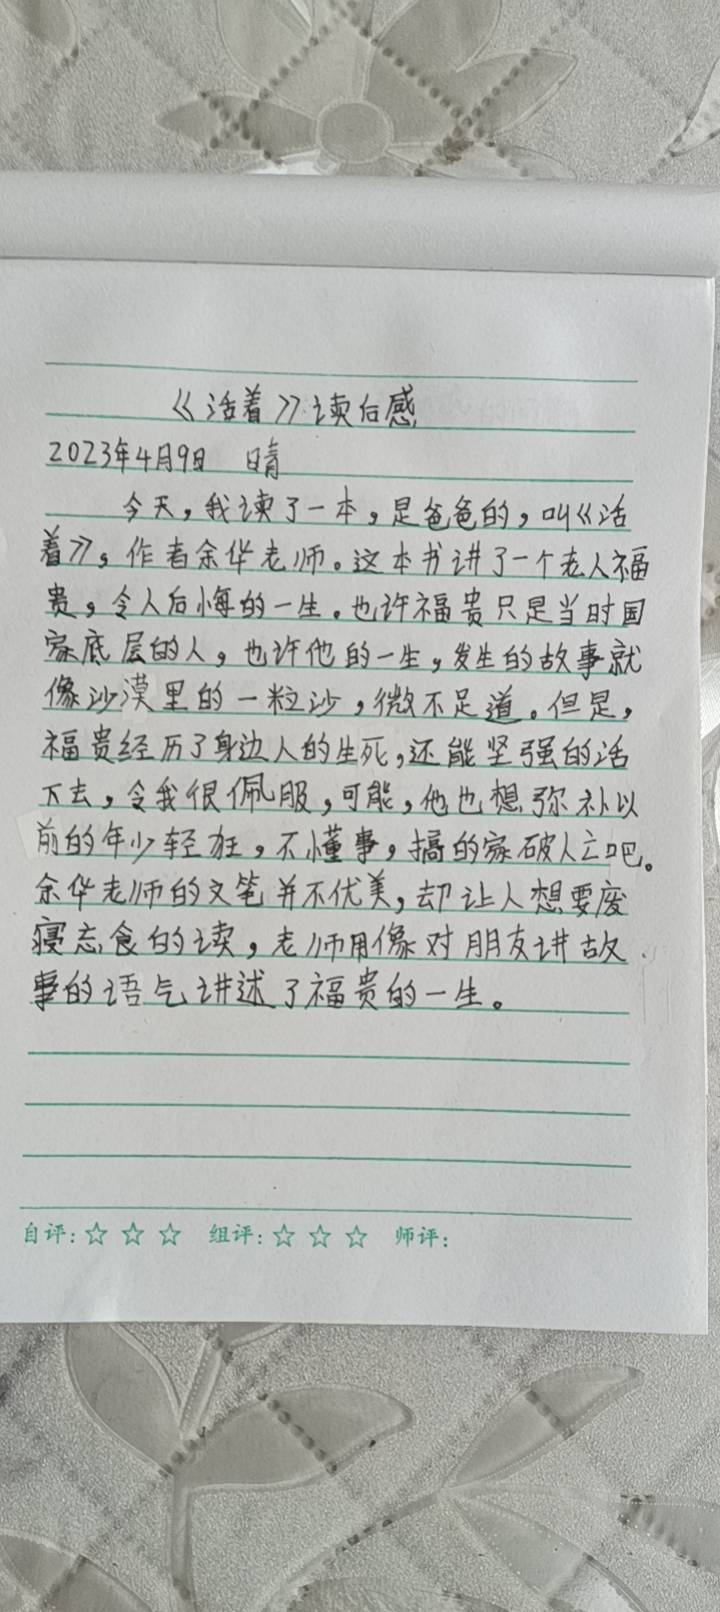 《活着》读后感
2023年4月9日 晴
今天，我读了一本，是爸爸的，叫《活
着》，作者余华老师。这本书讲了一个老人福
贵，令人后悔的一生。也许福贵只是当时国
家底层的人，也许他的一生，发生的故事就
像沙漠里的一粒沙，微不足道。但是，
福贵经历了身边人的生死，还能坚强的活
下去，令我很佩服，可能，他也想弥补以
前的年少轻狂，不懂事，搞的家破人亡吧。
余华老师的文笔并不优美，却让人想要废
寝忘食的读，老师用像对朋友讲故
事的语气讲述了福贵的一生。
自评：☆ ☆ ☆ 组评：☆ ☆ ☆ 师评：